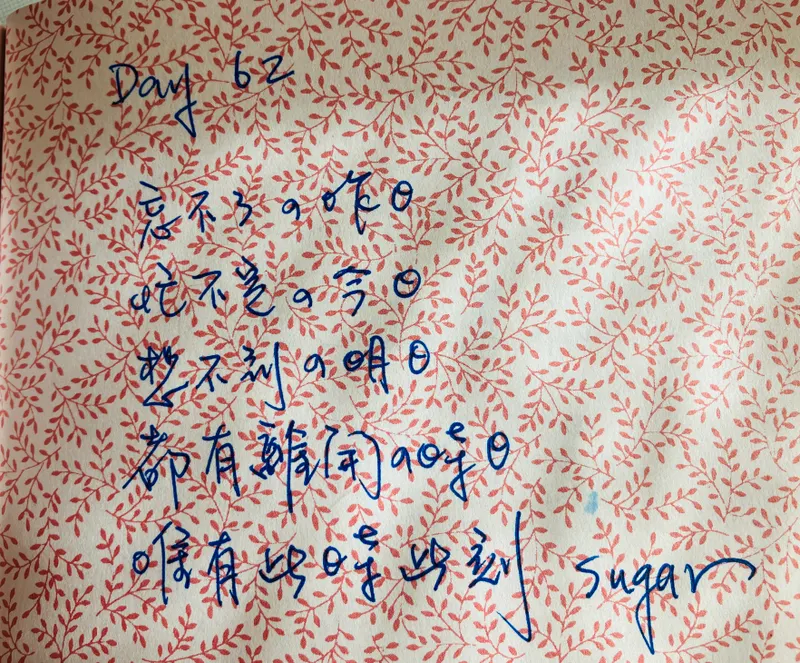 Day 62
忘不了的昨日
忙不完的今日
想不到的明日
都有離開的時日
唯有此時此刻 sugar